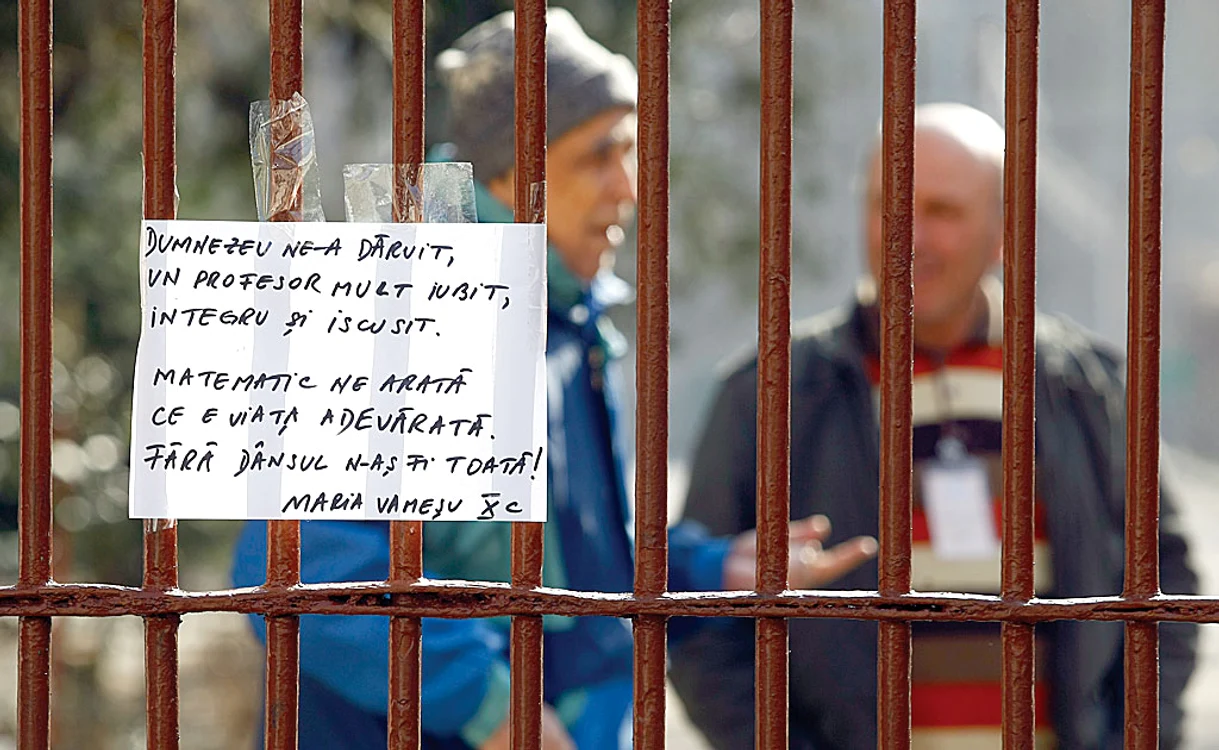 DUMNEZEU NE-A DĂRUIT,
UN PROFESOR MULT IUBIT,
INTEGRU ȘI ISCUSIT.
MATEMATIC NE ARATĂ
CE E VIAȚA ADEVĂRATĂ.
FĂRĂ DÂNSUL N-AȘ FI TOATĂ!
MARIA VAMEȘU X C